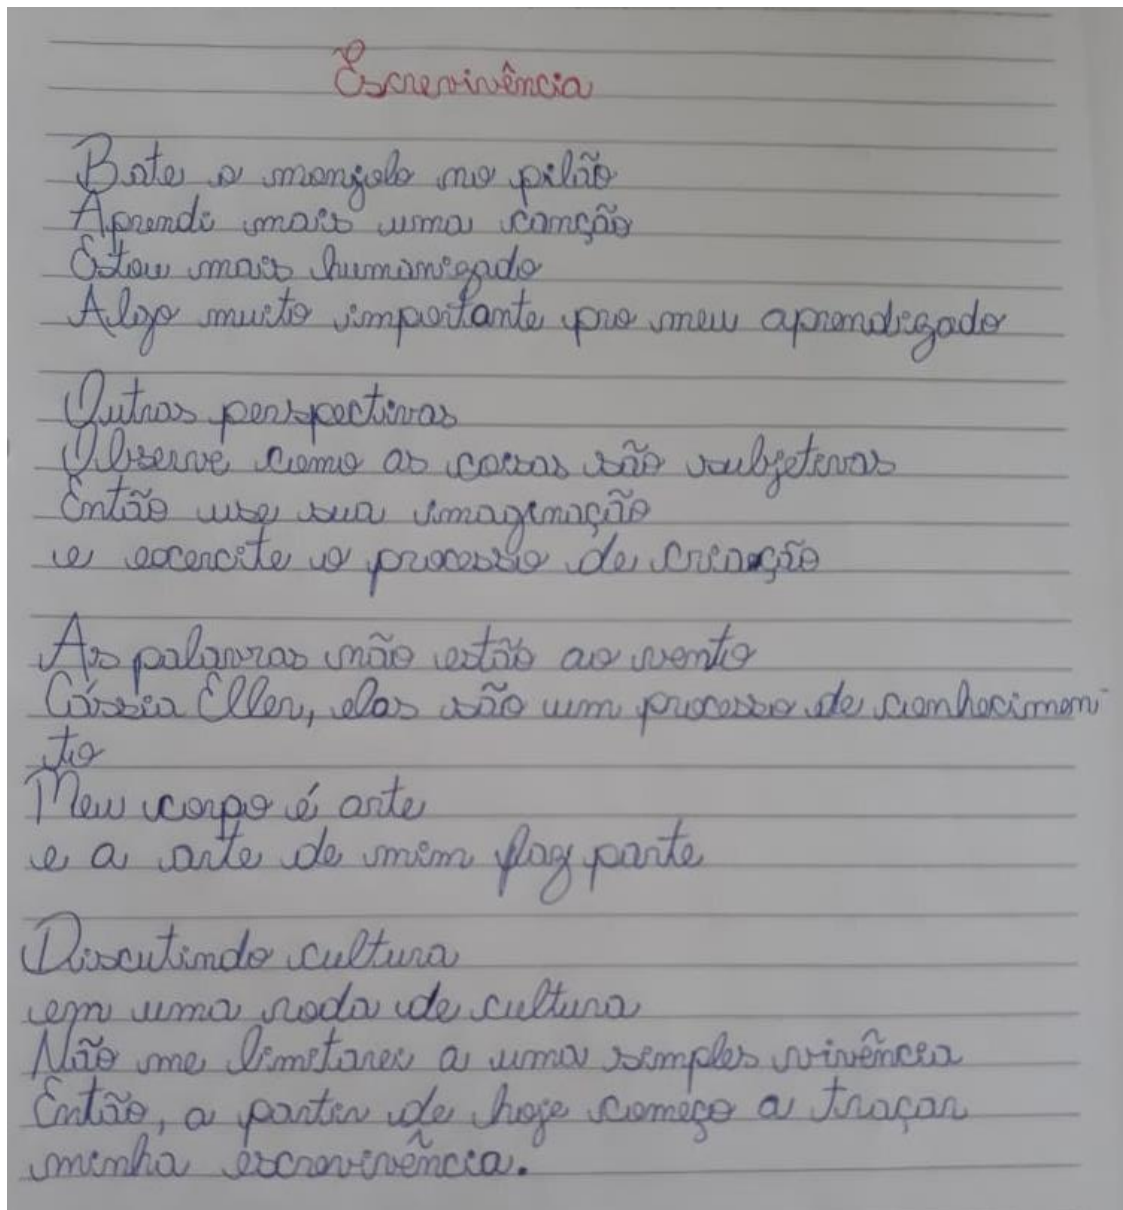 Escrevivência
Bate o monjolo no pilão
Aprendi mais uma canção
Estou mais humanizado
Algo muito importante pro meu aprendizado
Outras perspectivas
Observe como as coisas são subjetivas
Então use sua imaginação
e excercite o processo de criação
As palavras não estão ao vento
Cássia Eller, elas são um processo de conhecimen
to
Meu corpo é arte
e a arte de mim faz parte
Discutindo cultura
em uma roda de cultura
Não me limitarei a uma simples vivência
Então, a partir de hoje começo a traçar
minha escrevivência.